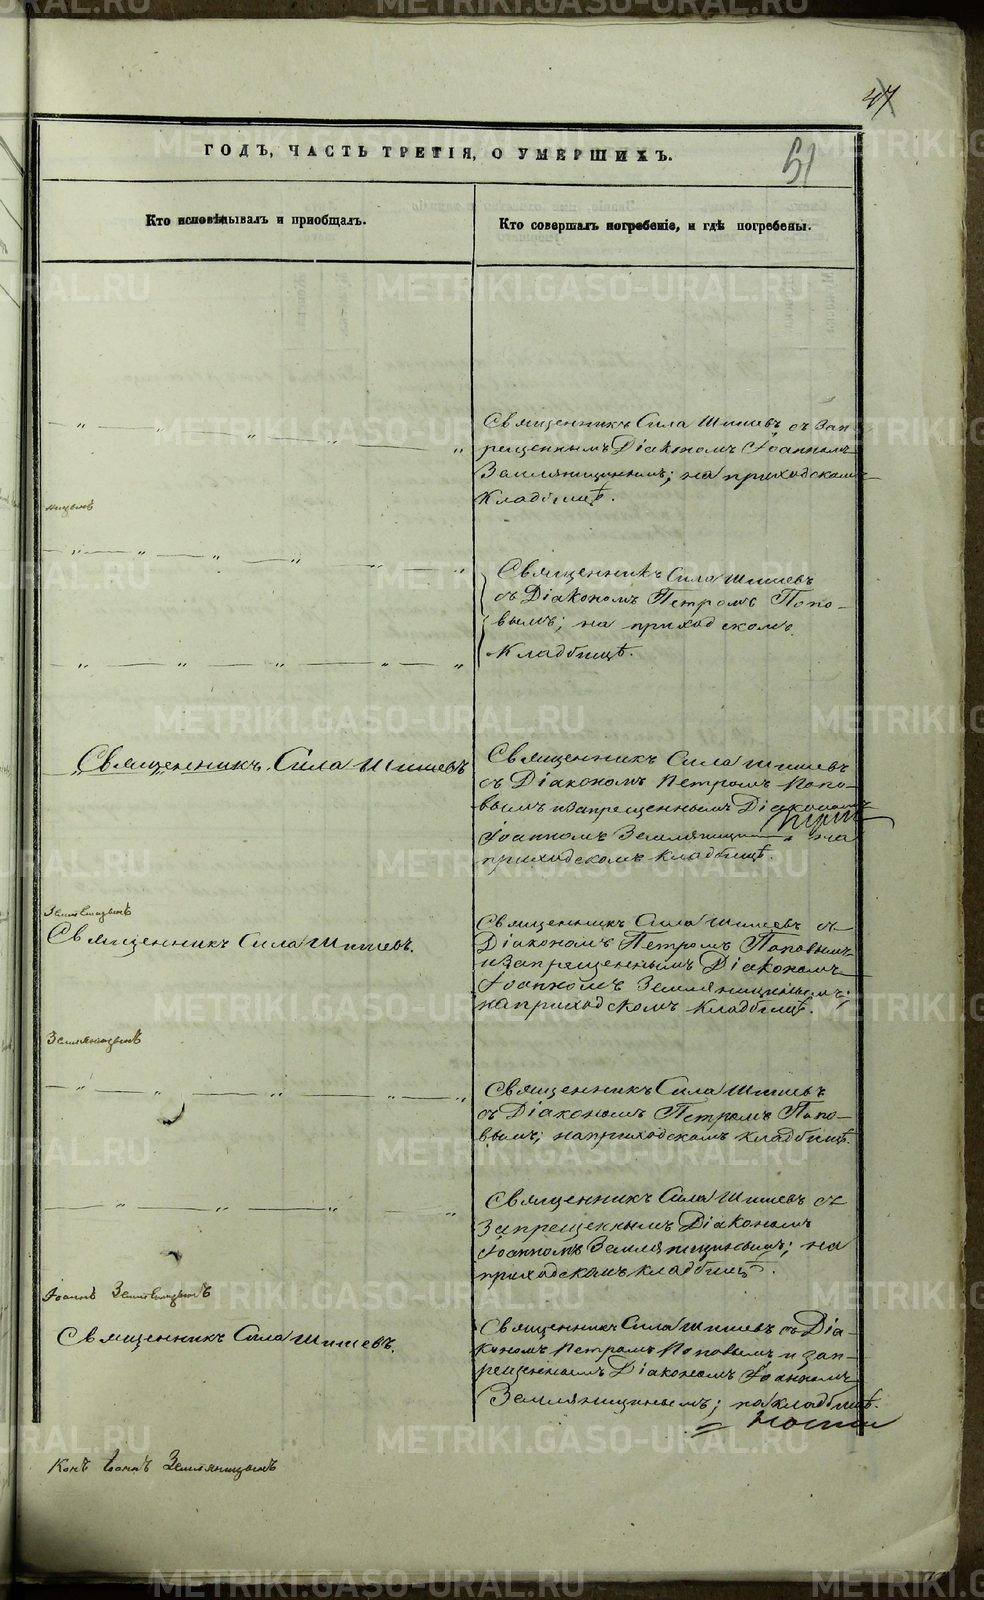 47
51
ГОДЪ, ЧАСТЬ ТРЕТІЯ, О УМЕРШИХЪ.
Кто исповѣдывалъ и приобщалъ.
Кто совершалъ погребеніе, и гдѣ погребены.
Священникъ Сила Шишевъ съ зап-
рещеннымъ Діакономъ Іоанномъ
Земляницинымъ; на приходскомъ
кладбищѣ.
Священникъ Сила Шишевъ
съ Діакономъ Петромъ Попо-
вымъ; на приходскомъ
кладбищѣ.
Священникъ Сила Шишевъ
Священникъ Сила Шишевъ
съ Діакономъ Петромъ Попо-
вымъ и запрещеннымъ Діакономъ
Іоанномъ на
приходскомъ кладбищѣ.
Священникъ Сила Шишевъ.
Священникъ Сила Шишевъ съ
Діакономъ Петромъ Поповымъ
и запрещеннымъ Діакономъ
Іоанномъ Земляницинымъ;
на приходскомъ кладбищѣ.
Земляницынъ
Священникъ Сила Шишевъ
съ Діакономъ Петромъ Попо-
вымъ; на приходскомъ кладбищѣ.
Священникъ Сила Шишевъ съ
Запрещеннымъ Діакономъ
Іоанномъ Земляницинымъ; на
приходскомъ кладбищѣ.
Іоаннъ Земляницынъ
Священникъ Сила Шишевъ.
Священникъ Сила Шишевъ съ Діа-
кономъ Петромъ Поповымъ и зап-
рещеннымъ Діакономъ Іоанномъ
Земляницинымъ; на кладбищѣ.
Іоаннъ Земляницынъ